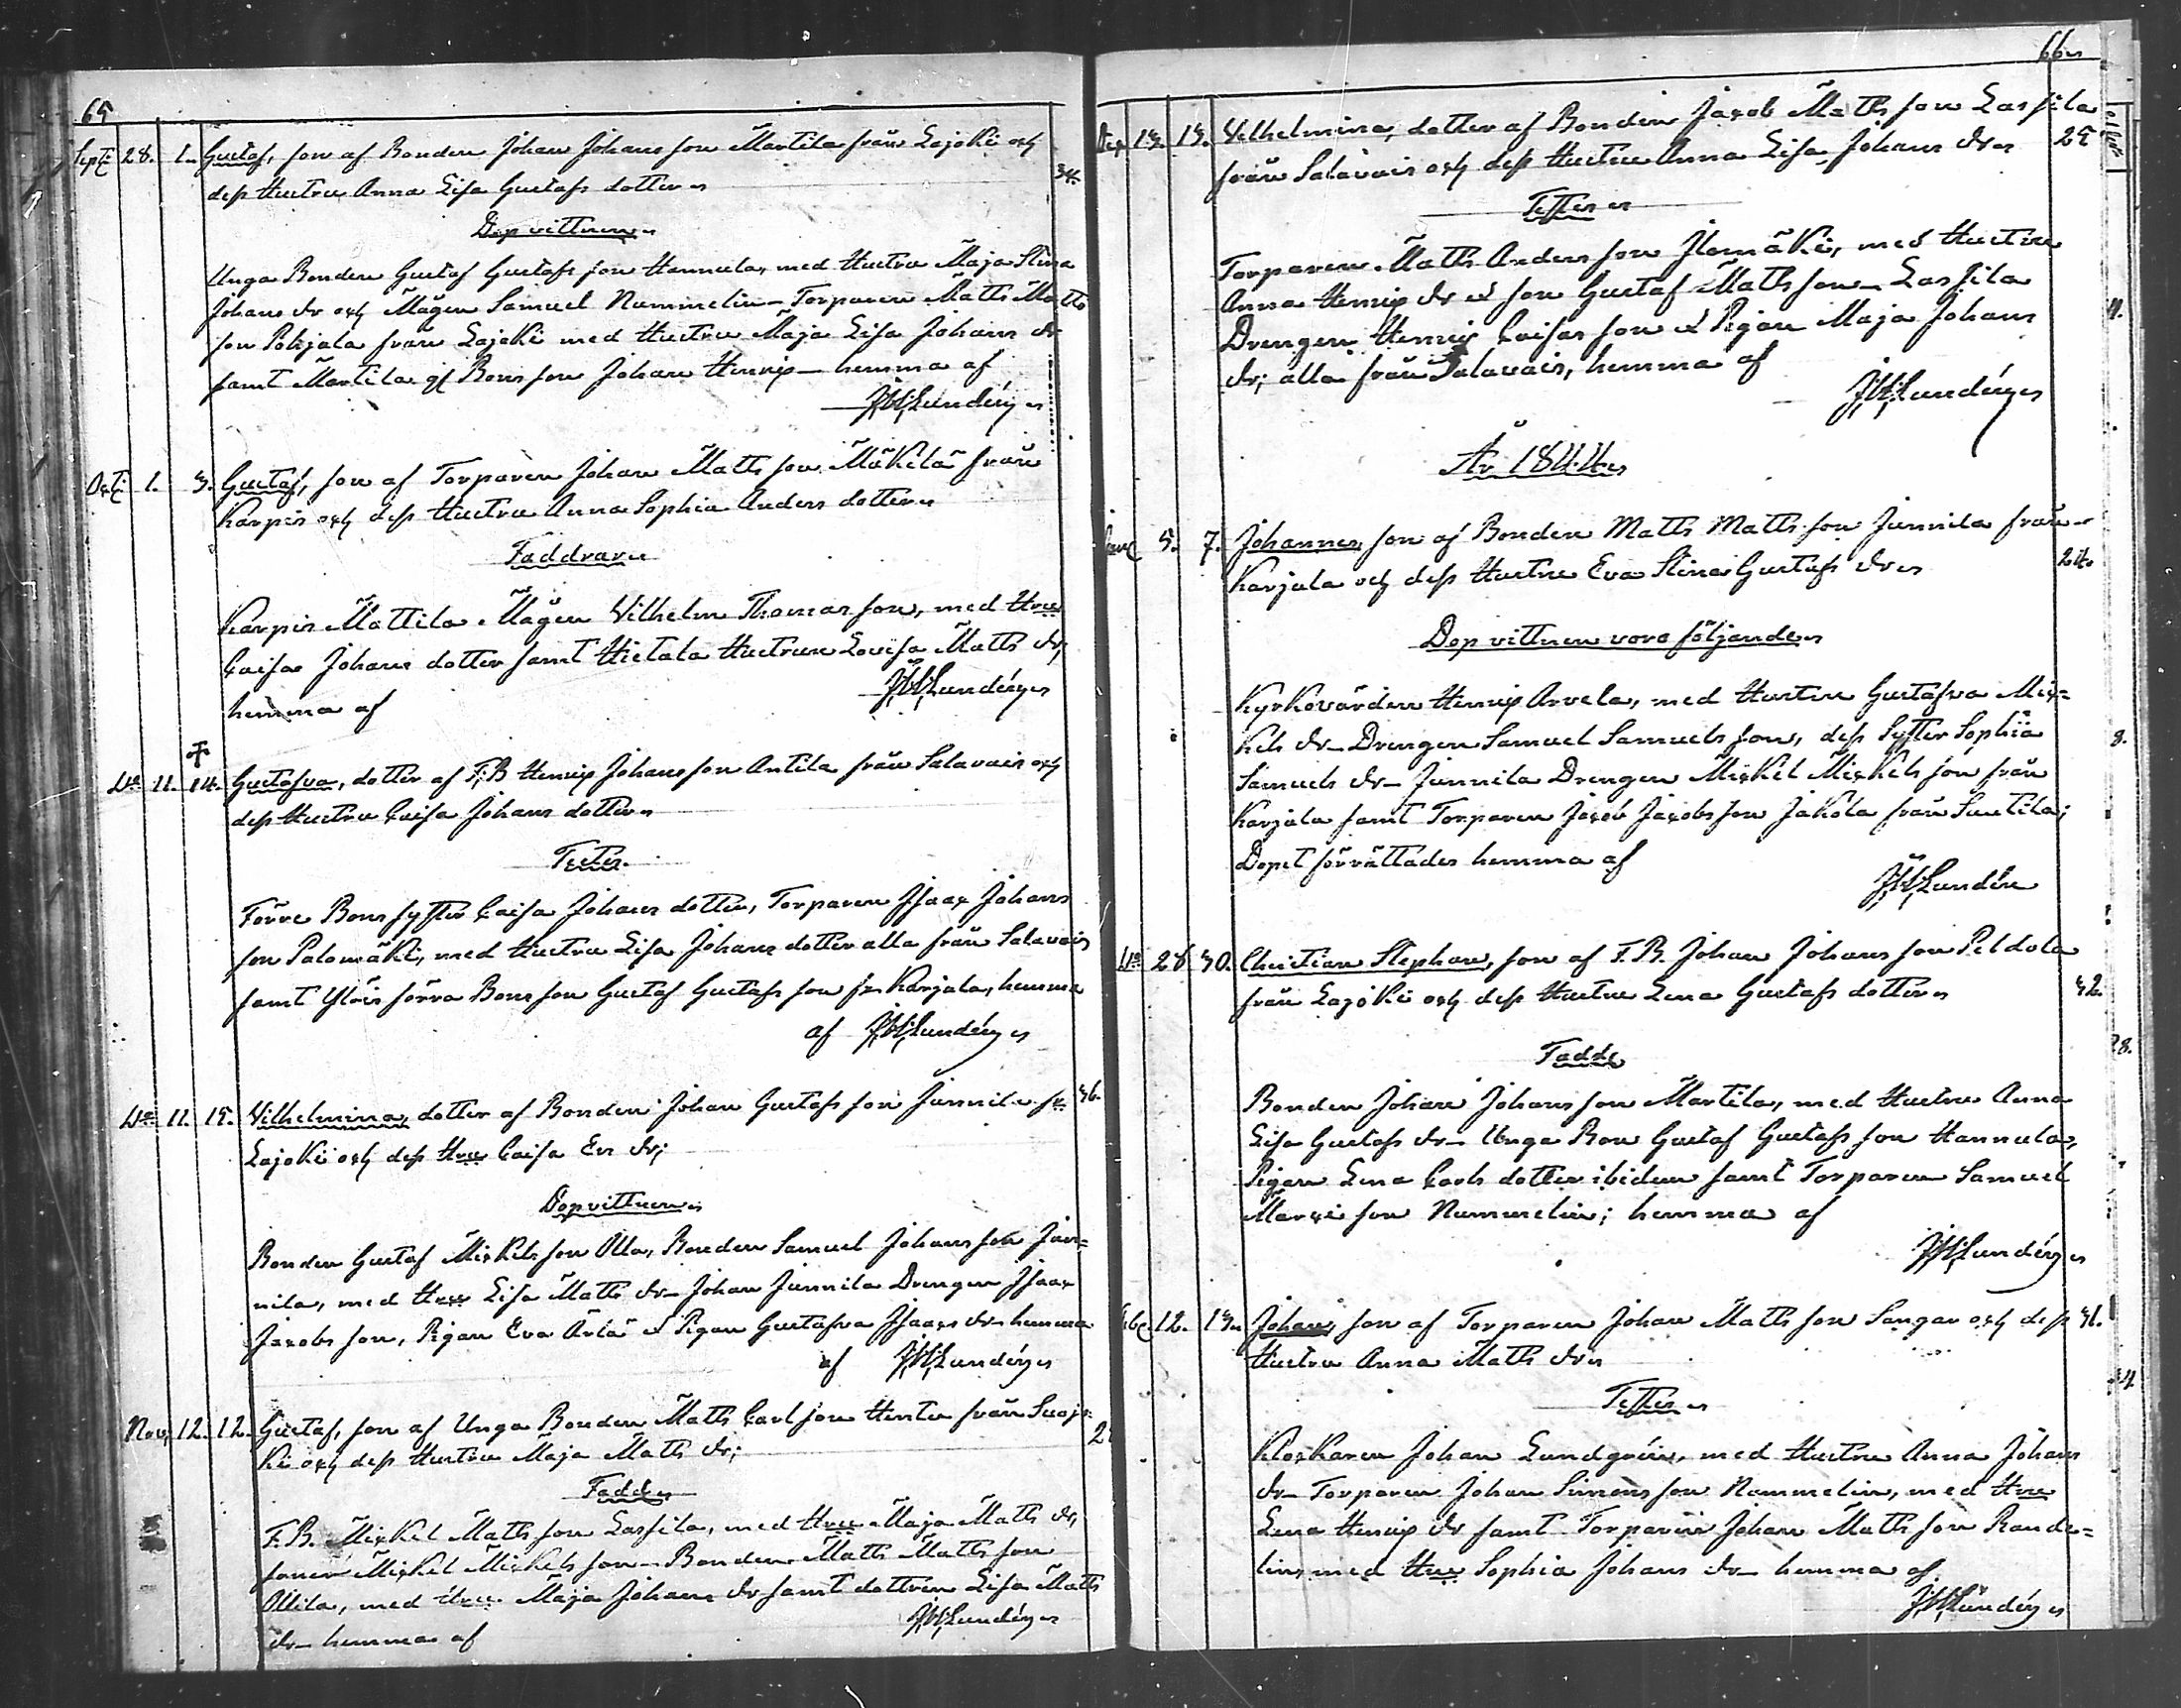 65
Sept 28. 1. Gustaf, son af Bonden Johan Johans son Martila från Lajoki och
dess Hustru Anna Lisa Gustafs dotter 34.
Dopvittnen
Unga Bonden Gustaf Gustafs son Hannula, med Hustru Maja Stina
Johans dr och Mågen Samuel Nummelin – Torparen Matts Matts
son Pohjala från Lajoki med Hustru Maja Lisa Johans dr
samt Martila gl Bons son Johan Henric – hemma af
JWLundén
Oct 1. 3. Gustaf, son af Torparen Johan Matts son Mäkelä från
Karpis och dess Hustru Anna Sophia Anders dotter
Faddrar
Karpis Mattila Mågen Wilhelm Thomas son, med Hru
Caisa Johans dotter samt Hietala Hustrun Lovisa Matts dr,
hemma af JWLundén
Do 11. 14. Gustafva, dotter af F.B Henric Johans son Antila från Salavais och
dess Hustru Caisa Johans dotter
Testes
Förre Bons syster Caisa Johans dotter, Torparen Isaac Johans
son Palomäki, med Hustru Lisa Johans dotter alla från Salavais
samt Yläis förra Bons son Gustaf Gustafs son fr Karjala, hemma
af JWLundén
Do 11. 15. Vilhelmina, dotter af Bonden Johan Gustafs son Junnila fr. 36.
Lajoki och dess Hru Caisa Ers dr;
Dopvittnen
Bonden Gustaf Mickels son Olla, Bonden Samuel Johans son Jun=
nila, med Hru Lisa Matts dr – Johan Junnila Drengen Isaac
Jacobs son, Pigan Eva Arla & Pigan Gustafva Isaacs dr hemma
af JWLundén
Nov. 12. 12. Gustaf, son af Unga Bonden Matts Carl son Hentu från Suojo=
ki och dess Hustru Maja Matts dr;
Fadd
F.B. Mickel Matts son Lassila, med Hru Maja Matts dr,
sonen Mickel Mickels son – Bonden Matts Matts son
Ollila, med Hru Maja Johans dr samt dottren Lisa Matts
dr – hemma af JWLundén
66
Dec 13. 15. Vilhelmina, dotter af Bonden Jacob Matts son Lassila
från Salavais och dess Hustru Anna Lisa Johans dr 25
Testes
Torparen Matts Anders son Ilomäki, med Hustru
Anna Henrics dr & son Gustaf Matts son – Lassila
Drengen Henric Caisas son & Pigan Maja Johans
dr; alla från Salavais, hemma af
JWLundén
År 1844
5. 7. Johannes, son af Bonden Matts Matts son Junnila från
Karjala och dess Hustru Eva Stina Gustafs dr 24.
Dop vittnen voro följande
Kyrkovärden Henric Arvela, med Hustru Gustafva Mic=
kels dr – Drengen Samuel Samuels son, dess Syster Sophia
Samuels dr – Junnila Drengen Mickel Mickels son från
Karjala samt Torparen Jacob Jacobs son Jakola från Suutila;
Dopet förrättades hemma af
JWLundén
Do 28 30. Christian Stephan, son af F.B. Johan Johans son Peldola
från Lajoki och dess Hustru Lena Gustafs dotter 32.
Fadde
Bonden Johan Johans son Martila, med Hustru Anna
Lisa Gustafs dr – Unga Bon Gustaf Gustafs son Hannula,
Pigan Lena Carls dotter ibidem samt Torparen Samuel
Marci son Nummelin; hemma af
JWLundén
12. 13. Johan, son af Torparen Johan Matts son Sangar och dess 31.
Hustru Anna Matts dr
Testes
Klockaren Johan Lundgrén, med Hustru Anna Johans
dr – Torparen Johan Simons son Nummelin, med Hru
Lena Henrics dr samt Torparen Johan Matts son Rande=
lin, med Hru Sophia Johans dr – hemma af
JWLundén